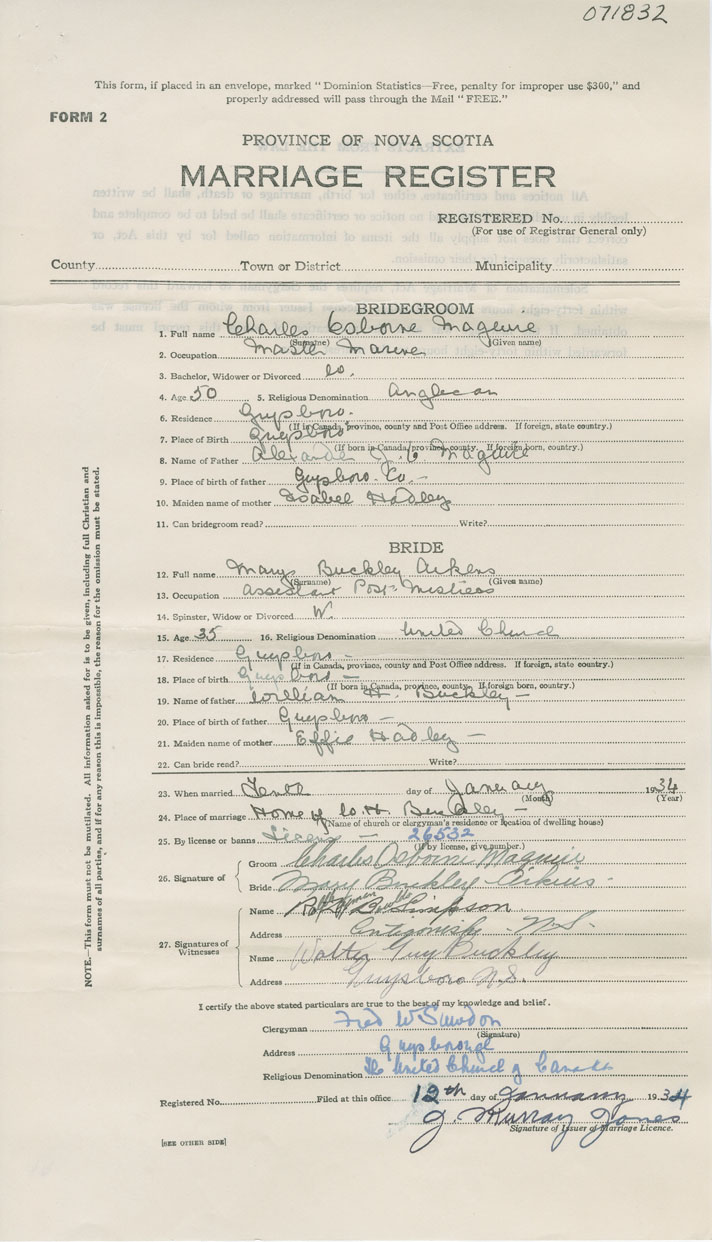 071832
This form, if placed in an envelope, marked "Dominion Statistics—Free, penalty for improper use $300," and
properly addressed will pass through the Mail "FREE."
FORM 2
PROVINCE OF NOVA SCOTIA
MARRIAGE REGISTER
REGISTERED No.
(For use of Registrar General only)
County Town or District Municipality
BRIDEGROOM
1. Full name Charles Osborne Maguire
(Surname) (Given name)
2. Occupation Master Marine
3. Bachelor, Widower or Divorced
4. Age 50 5. Religious Denomination Anglican
6. Residence Guysboro.
(If in Canada, province, county and Post Office address. If foreign, state country.)
7. Place of Birth Guysboro
(If born in Canada, province, county. If foreign born, country.)
8. Name of Father Maguire
9. Place of birth of father Guysboro. Co.
10. Maiden name of mother Isabel Hadley
11. Can bridegroom read? Write?
BRIDE
12. Full name Mary Buckley Aikens
(Surname) (Given name)
13. Occupation Assistant Post-Mistress
14. Spinster, Widow or Divorced W.
15. Age 35 16. Religious Denomination United Church
17. Residence Guysboro -
(If in Canada, province, county and Post Office address. If foreign, state country.)
18. Place of birth Guysboro -
(If born in Canada, province, county. If foreign born, country.)
19. Name of father William H. Buckley -
20. Place of birth of father Guysboro -
21. Maiden name of mother Effie Hadley -
22. Can bride read? Write?
23. When married Tenth day of January 1934
(Month) (Year)
24. Place of marriage Home of W. H. Buckley -
(Name of church or clergyman's residence or location of dwelling house)
25. By license or banns License - 26532
(If by license, give number.)
26. Signature of
Groom Charles Osborne Maguire
Bride Mary Buckley Aikins -
27. Signatures of
Witnesses
Name Simpson
Address Antigonish - N.S.
Name Walter Guy Buckley
Address Guysboro N.S.
I certify the above stated particulars are true to the best of my knowledge and belief.
Clergyman Fred W
(Signature)
Address Guysborough
Religious Denomination The United Church of Canada
Registered No. Filed at this office 12th day of January 1934
J. Murray Jones
Signature of Issuer of Marriage Licence.
[SEE OTHER SIDE]
NOTE.—This form must not be mutilated. All information asked for is to be given, including full Christian and
surnames of all parties, and if for any reason this is impossible, the reason for the omission must be stated.